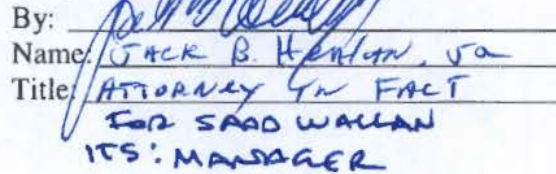 By:
Name: JACK B. HEALAN, JR
Title: ATTORNEY IN FACT
FOR SAAD WALLAN
ITS: MANAGER